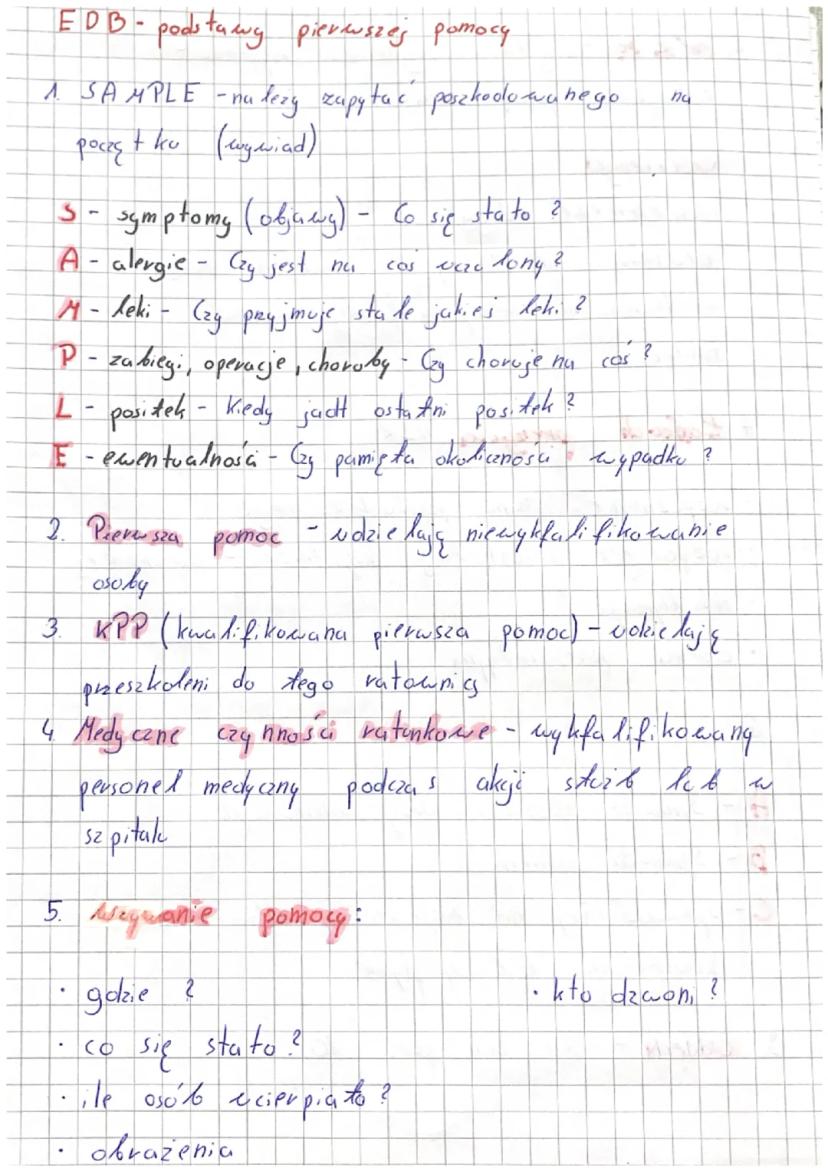 EDB - podstawy pierwszej pomocy
1. SAMPLE - należy zapytać poszkodowanego na
początku (wywiad)
S - symptomy (objawy) - Co się stało?
A - alergie - Czy jest na coś uczulony?
M - leki - Czy przyjmuje stałe jakieś leki?
P - zabiegi, operacje, choroby - Czy choruje na coś?
L - posiłek - Kiedy jadł ostatni posiłek?
E - ewentualności - Czy pamięta okoliczności wypadku?
2. Pierwsza pomoc - udzielają niewykfalifikowanie
osoby
3. KPP (kwalifikowana pierwsza pomoc) - udzielają
przeszkoleni do tego ratownicy
4. Medyczne czynności ratunkowe - wykfalifikowany
personel medyczny podczas akcji służb lub w
szpitalu
5. Wzywanie pomocy:
· gdzie? · kto dzwoni?
· co się stało?
· ile osób ucierpiało?
· obrażenia